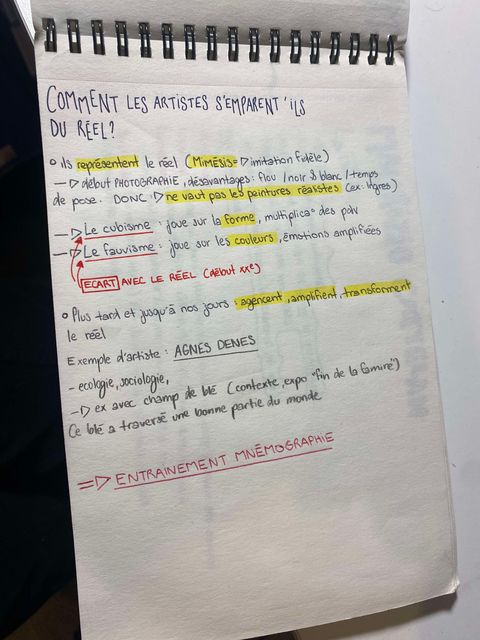 COMMENT LES ARTISTES S'EMPARENT'ILS
DU RÉEL?
o Ils représentent le réel (MIMÈSIS=▷imitation fidèle)
—▷ début PHOTOGRAPHIE, désavantages: flou /noir & blanc /temps
de pose. DONC ▷ ne vaut pas les peintures réalistes (ex: Ingres)
—▷ Le cubisme : joue sur la forme, multiplica° des pdv
—▷ Le fauvisme : joue sur les couleurs, émotions amplifiées
ECART AVEC LE RÉEL (début XXe)
o Plus tard et jusqu'à nos jours : agencent, amplifient, transforment
le réel
Exemple d'artiste : AGNES DENES
- ecologie, sociologie,
—▷ ex avec champ de blé (contexte, expo "fin de la famine")
Ce blé a traversé une bonne partie du monde
=▷ ENTRAINEMENT MNÉMOGRAPHIE